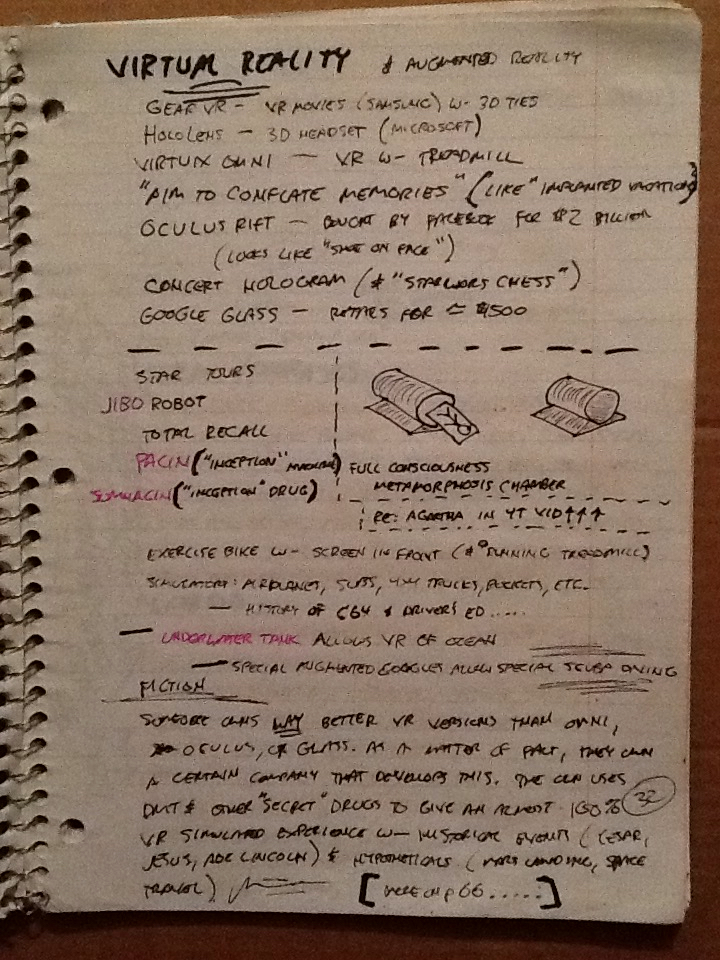 VIRTUAL REALITY & AUGMENTED REALITY
GEAR VR - VR MOVIES (SAMSUNG) W- 3D TIES
HOLOLENS - 3D HEADSET (MICROSOFT)
VIRTUIX OMNI - VR W- TREADMILL
"AIM TO CONFLATE MEMORIES" (LIKE "IMPLANTED VACATION")
OCULUS RIFT - BOUGHT BY FACEBOOK FOR $2 BILLION
(LOOKS LIKE "SHOE ON FACE")
CONCERT HOLOGRAM (& "STARWORS CHESS")
GOOGLE GLASS - RETAILS FOR ≈ $1500
STAR TOURS
JIBO ROBOT
TOTAL RECALL
PACIN ("INCEPTION" MACHINE)
SOMNACIN ("INCEPTION" DRUG)
FULL CONSCIOUSNESS
METAMORPHOSIS CHAMBER
RE: AGARTHA IN YT VID ↑↑↑
EXERCISE BIKE W- SCREEN IN FRONT (& RUNNING TREADMILL)
SIMULATORS: AIRPLANES, SUBS, 4X4 TRUCKS, ROCKETS, ETC.
- HISTORY OF C64 & DRIVER'S ED.....
- UNDERWATER TANK ALLOWS VR OF OCEAN
- SPECIAL AUGMENTED GOGGLES ALLOW SPECIAL SCUBA DIVING
FICTION
SOMEONE OWNS WAY BETTER VR VERSIONS THAN OMNI,
OCULUS, OR GLASS. AS A MATTER OF FACT, THEY OWN
A CERTAIN COMPANY THAT DEVELOPS THIS. THE USES
DMT & OTHER "SECRET" DRUGS TO GIVE AN ALMOST 100%
32
VR SIMULATED EXPERIENCE W- HISTORICAL EVENTS (CESAR,
JESUS, ABE LINCOLN) & HYPOTHETICALS (MARS LANDING, SPACE
TRAVEL)
[MORE ON p 66.....]